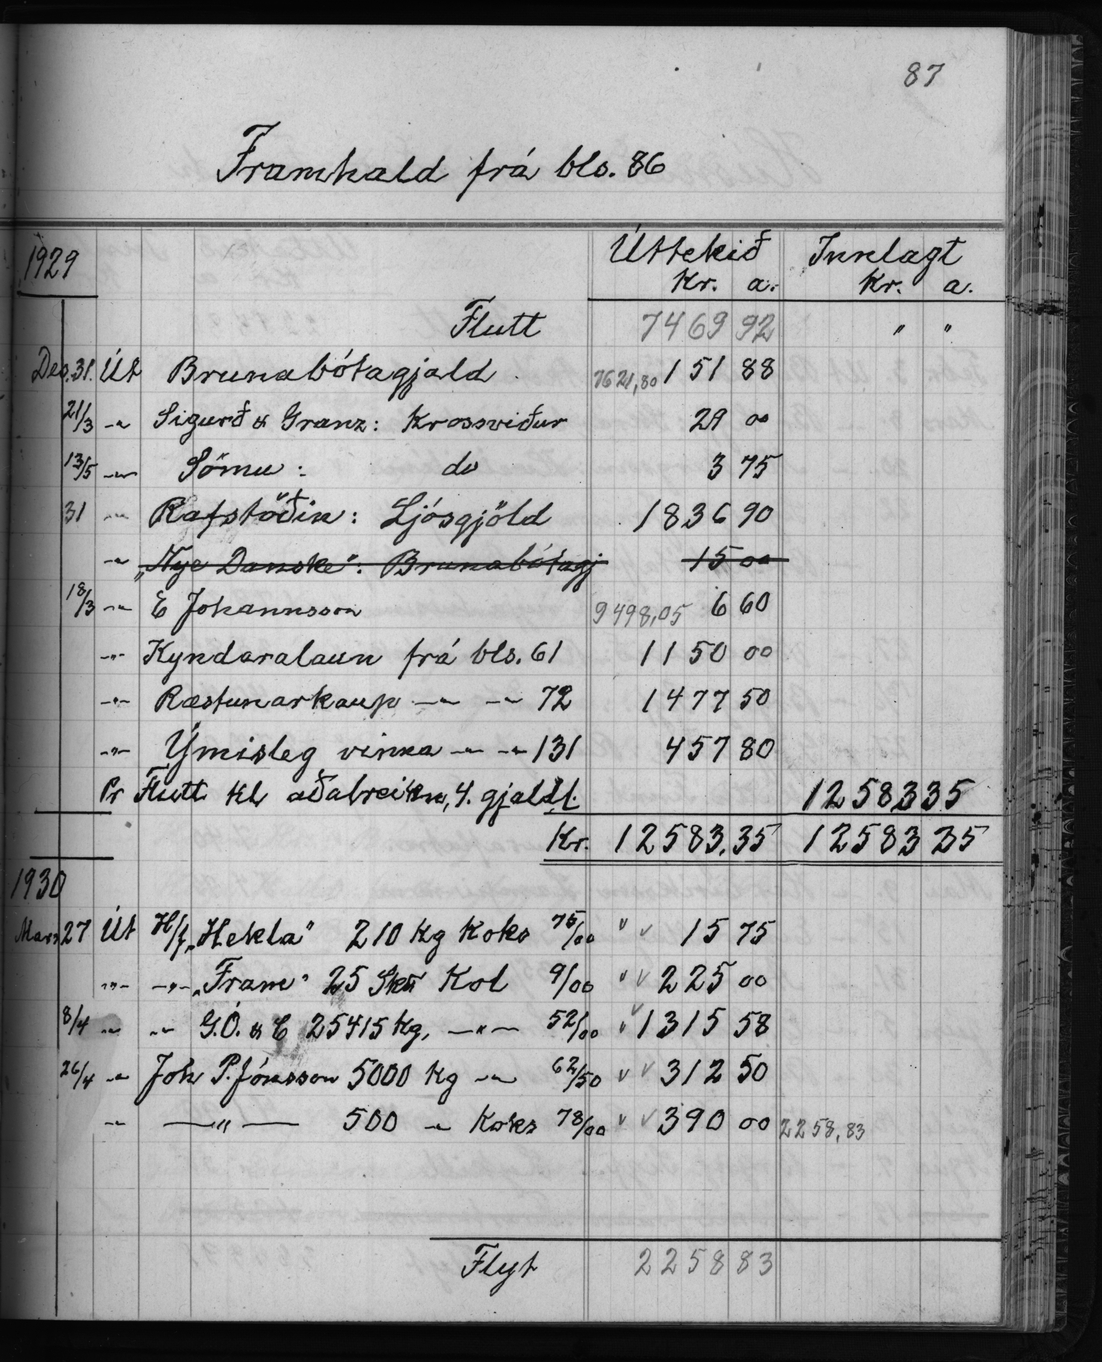 87
Framhald frá bls. 86
1929 Úttekið Innlagt
Kr. a. Kr. a.
Flutt 7469 92 " "
Des. 31. Út Brunabótagjald 7621,80 151 88
21/3 -"- Sigurð & Granz: Krossviður 29 00
13/5 -"- Sömu: do 3 75
31 -"- Rafstöðin: Ljósgjöld 1836 90
-"- „Nye Danske": Brunabótagj 15 00
18/3 -"- E Johannsson 9498,05 6 60
-"- Kyndaralaun frá bls. 61 1150 00
-"- Ræstunarkaup -"- -"- 72 1477 50
-"- Ýmisleg vinna -"- -"- 131 457 80
Pr Flutt til aðalreikn, 4. gjaldl. 12583 35
Kr. 12583,35 12583 35
1930
Mars 27 Út H/f „Hekla" 210 Kg Koks 75/00 " 15 75
-"- -"- „Fram" 25 Skt Kol 9/00 " 225 00
8/4 -"- -"- G.Ó. & E 25415 Kg. -"- 52/00 " 1315 58
26/4 -"- Joh P. Jónsson 5000 Kg -"- 62/50 " 312 50
-"- -"- 500 -"- Koks 78/00 " 390 00 2258,83
Flyt 2258 83